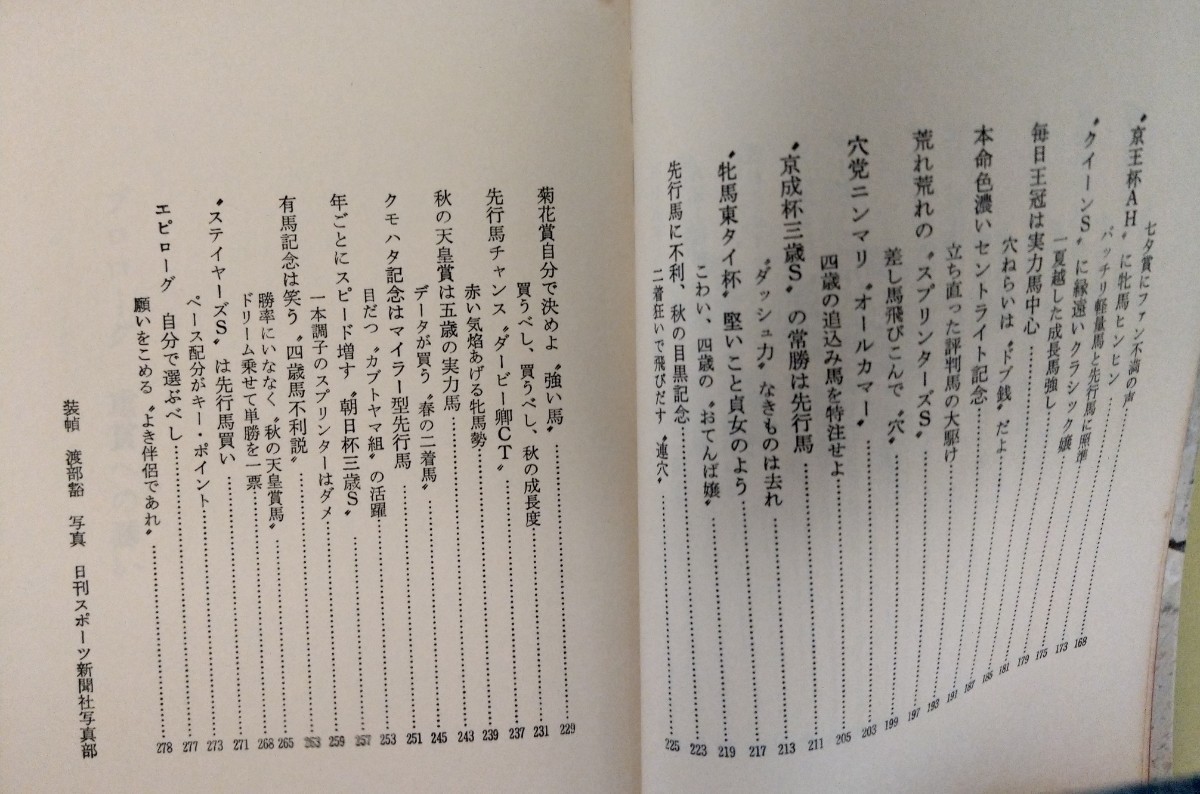 七夕賞にファン不満の声……168
〝京王杯AH〟に牝馬ヒンヒン……173
バッチリ軽量馬と先行馬に照準……175
〝クイーンS〟に縁遠いクラシック嬢……179
一夏越した成長馬強し……181
毎日王冠は実力馬中心……185
穴ねらいは〝ドブ銭〟だよ……187
本命色濃いセントライト記念……191
立ち直った評判馬の大駆け……193
荒れ荒れの〝スプリンターズS〟……197
差し馬飛びこんで〝穴〟……199
穴党ニンマリ〝オールカマー〟……203
四歳の追込み馬を特注せよ……205
〝京成杯三歳S〟の常勝は先行馬……211
〝ダッシュ力〟なきものは去れ……213
〝牝馬東タイ杯〟堅いこと貞女のよう……217
こわい、四歳の〝おてんば嬢〟……219
先行馬に不利、秋の目黒記念……223
二着狂いで飛びだす〝連穴〟……225
菊花賞自分で決めよ〝強い馬〟……229
買うべし、買うべし、秋の成長度……231
先行馬チャンス〝ダービー卿CT〟……237
赤い気焰あげる牝馬勢……239
秋の天皇賞は五歳の実力馬……243
データが買う〝春の二着馬〟……245
クモハタ記念はマイラー型先行馬……251
目だつ〝カブトヤマ組〟の活躍……253
年ごとにスピード増す〝朝日杯三歳S〟……257
一本調子のスプリンターはダメ……259
有馬記念は笑う〝四歳馬不利説〟……263
勝率にいななく〝秋の天皇賞馬〟……265
ドリーム乗せて単勝を一票……268
〝ステイヤーズS〟は先行馬買い……271
ペース配分がキー・ポイント……273
エピローグ 自分で選ぶべし……277
願いをこめる〝よき伴侶であれ〟……278
装幀 渡部豁 写真 日刊スポーツ新聞社写真部